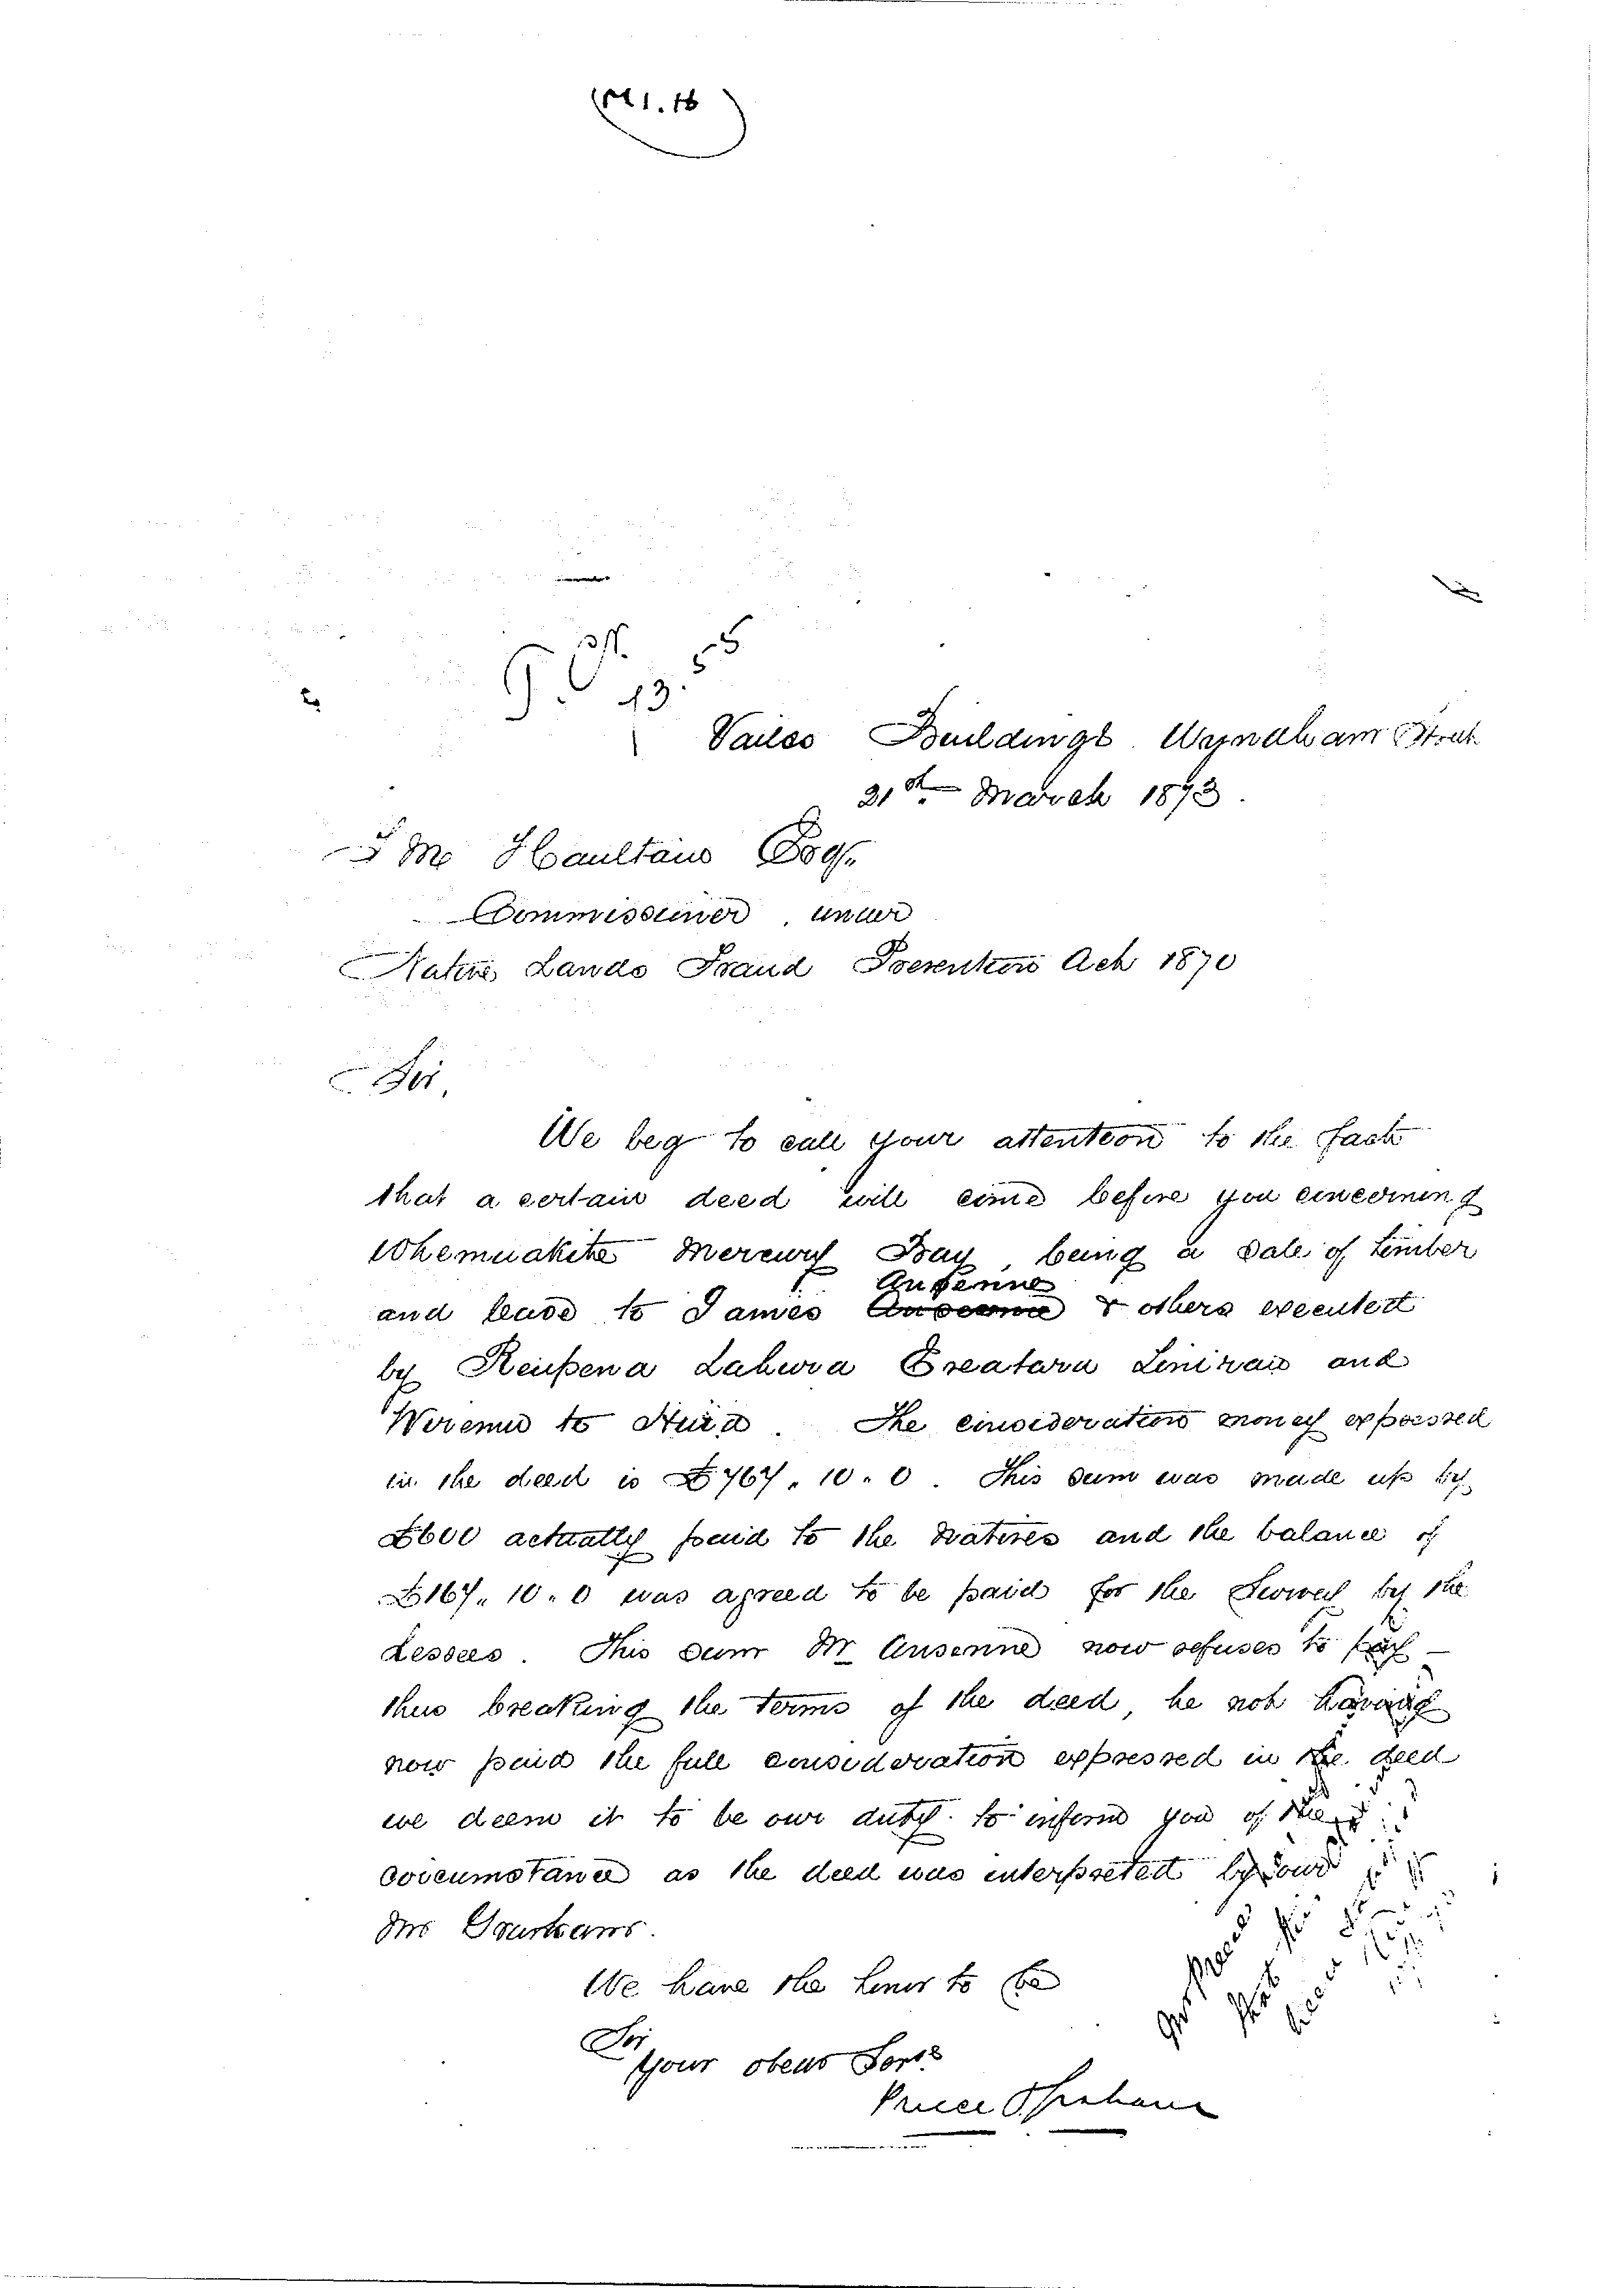 Vailes Buildings Wyndham Street
21st March 1873.
T M Haultain Esq.
Commissioner under
Native Lands Fraud Prevention Act 1870
Sir,
We beg to call your attention to the fact
that a certain deed will come before you concerning
Mercury Bay, being a Sale of timber
Ansenne
and lease to James & others executed
by and
to The consideration money expressed
in the deed is £767. 10. 0. This sum was made up by
£600 actually paid to the Natives and the balance of
£167. 10. 0 was agreed to be paid for the Survey by the
Lessees. This sum Mr Ansenne now refuses to pay -
thus breaking the terms of the deed, he not having
now paid the full consideration expressed in the deed
we deem it to be our duty to inform you of the
circumstance as the deed was interpreted by our
Mr
We have the honor to be
Sir
Your obedt Servts